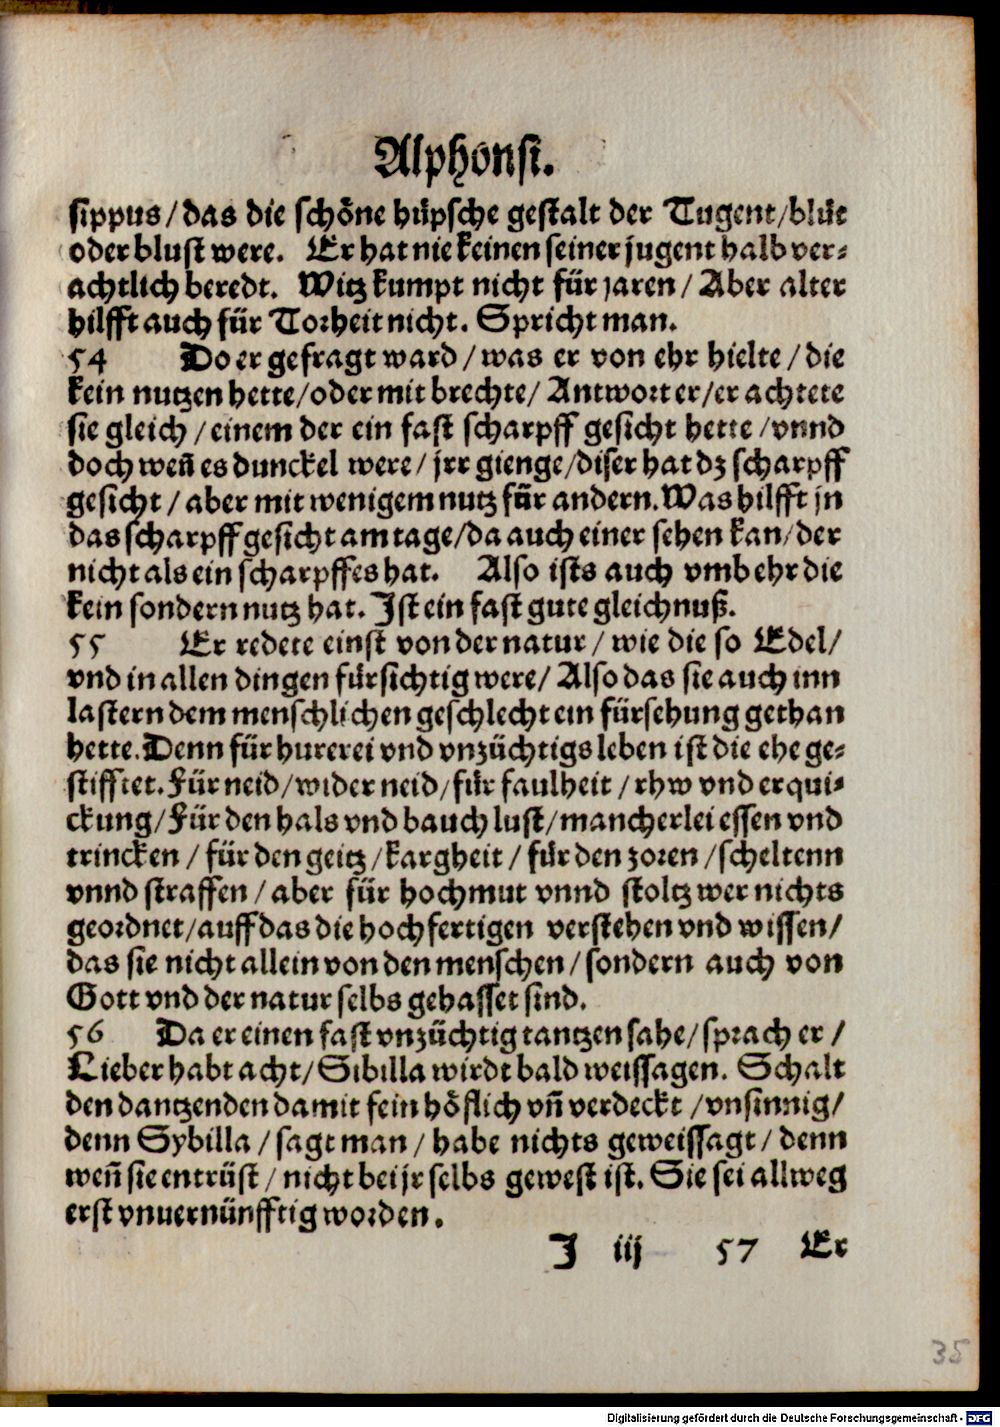 Alphonsi.
sippus/das die schöne hüpsche gestalt der Tugent/blüt
oder blust were. Er hat nie keinen seiner jugent halb ver-
achtlich beredt. Witz kumpt nicht für jaren/ Aber alter
hilfft auch für Torheit nicht. Spricht man.
54 Do er gefragt ward/was er von ehr hielte/die
kein nutzen hette/oder mit brechte/ Antwort er/er achtete
sie gleich/einem der ein fast scharpff gesicht hette/vnnd
doch weñ es dunckel were/jrr gienge/diser hat dz scharpff
gesicht/aber mit wenigem nutz für andern. Was hilfft jn
das scharpff gesicht am tage/da auch einer sehen kan/der
nicht als ein scharpffes hat. Also ists auch vmb ehr die
kein sondern nutz hat. Ist ein fast gute gleichnuß.
55 Er redete einst von der natur/wie die so Edel/
vnd in allen dingen fürsichtig were/ Also das sie auch inn
lastern dem menschlichen geschlecht ein fürsehung gethan
hette. Denn für hurerei vnd vnzüchtigs leben ist die ehe ge-
stifftet. Für neid/wider neid/für faulheit/rhw vnd erqui-
ckung/Für den hals vnd bauch lust/mancherlei essen vnd
trincken/für den geitz/kargheit/für den zoren/scheltenn
vnnd straffen/aber für hochmut vnnd stoltz wer nichts
geordnet/auff das die hochfertigen verstehen vnd wissen/
das sie nicht allein von den menschen/sondern auch von
Gott vnd der natur selbs gehasset sind.
56 Da er einen fast vnzüchtig tantzen sahe/sprach er/
Lieber habt acht/Sibilla wirdt bald weissagen. Schalt
den dantzenden damit fein höflich vñ verdeckt/vnsinnig/
denn Sybilla/sagt man/habe nichts geweissagt/denn
weñ sie entrüst/nicht bei jr selbs gewest ist. Sie sei allweg
erst vnuernünfftig worden.
J iij 57 Er
35
Digitalisierung gefördert durch die Deutsche Forschungsgemeinschaft - DFG